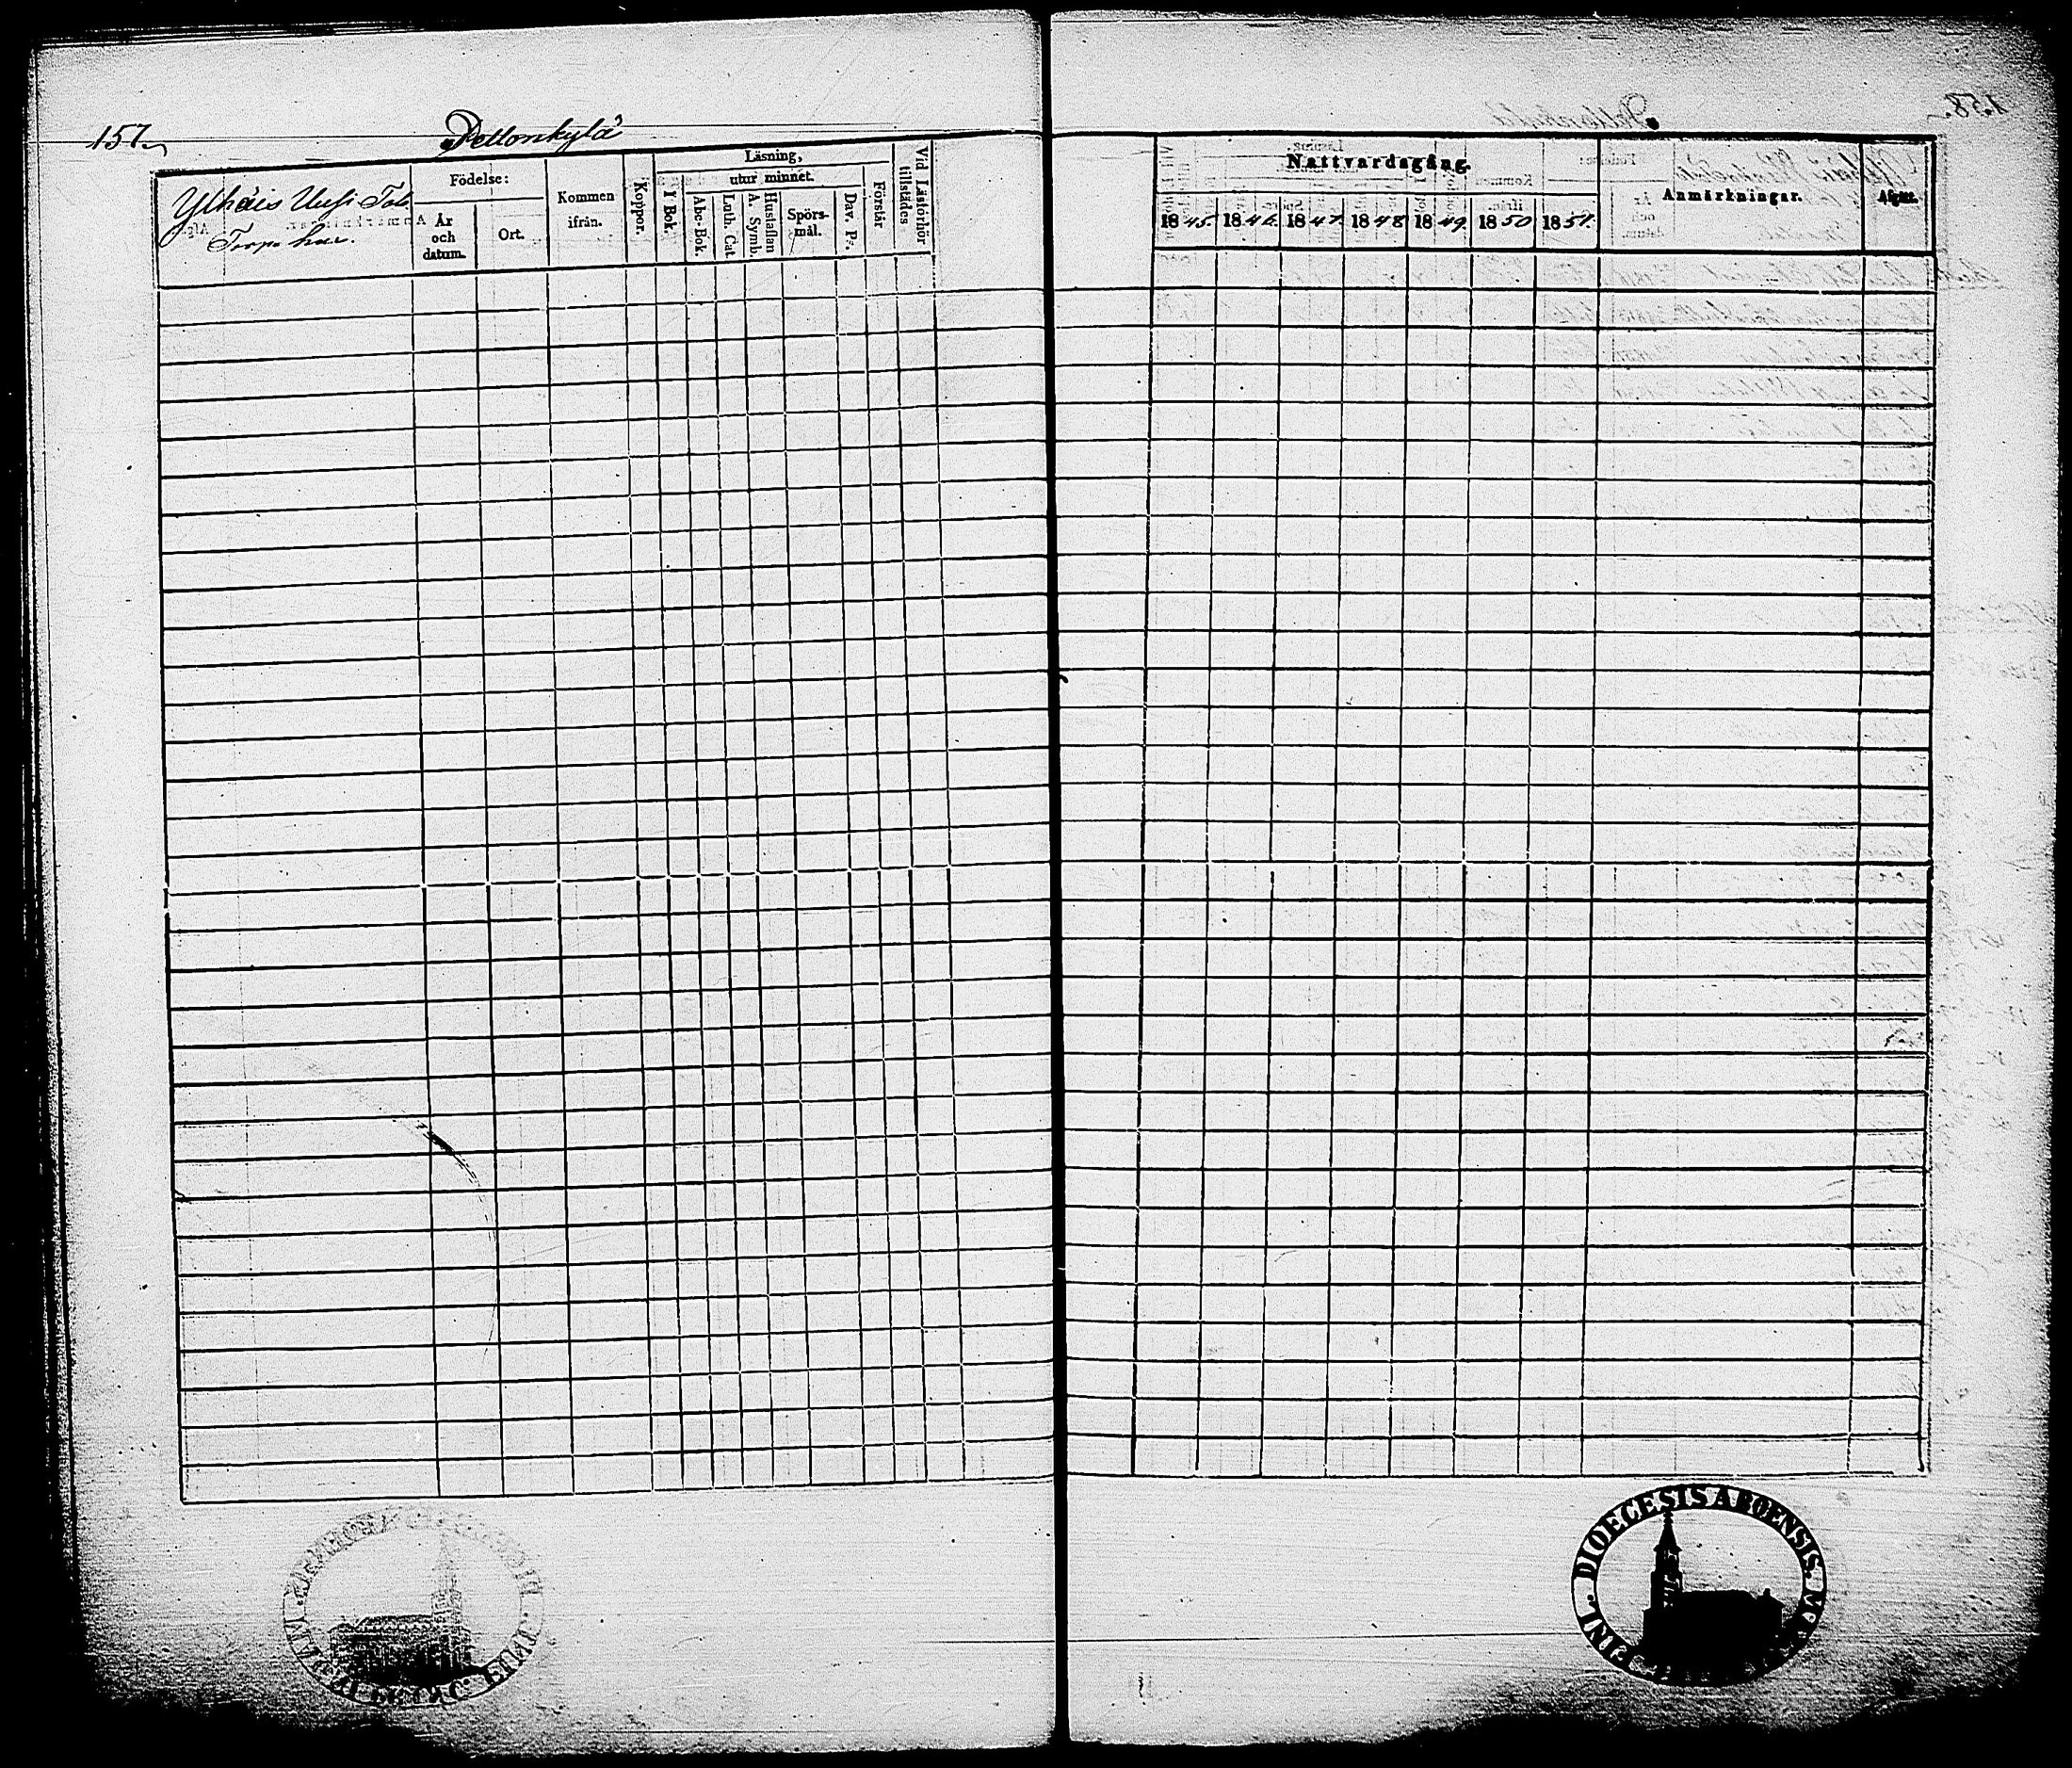 157.
Pellonkylä
Ylhäis Uusi Tal.
Torpe har.
Födelse:
År
och
datum.
Ort.
Kommen
ifrån.
Koppor.
Läsning,
utur minnet.
Y Bok.
Abc-Bok.
Luth. Cat
A. Symb.
Hustaflan
Spörs-
mål.
Dav. Ps.
Förstår
Vid Läsförhör
tillstädes
Nattvardsgång.
1845. 1846. 1847. 1848 1849. 1850 1851.
Anmärkningar.
Afgått.
DIOECESIS ABOENSIS. M
FINL.